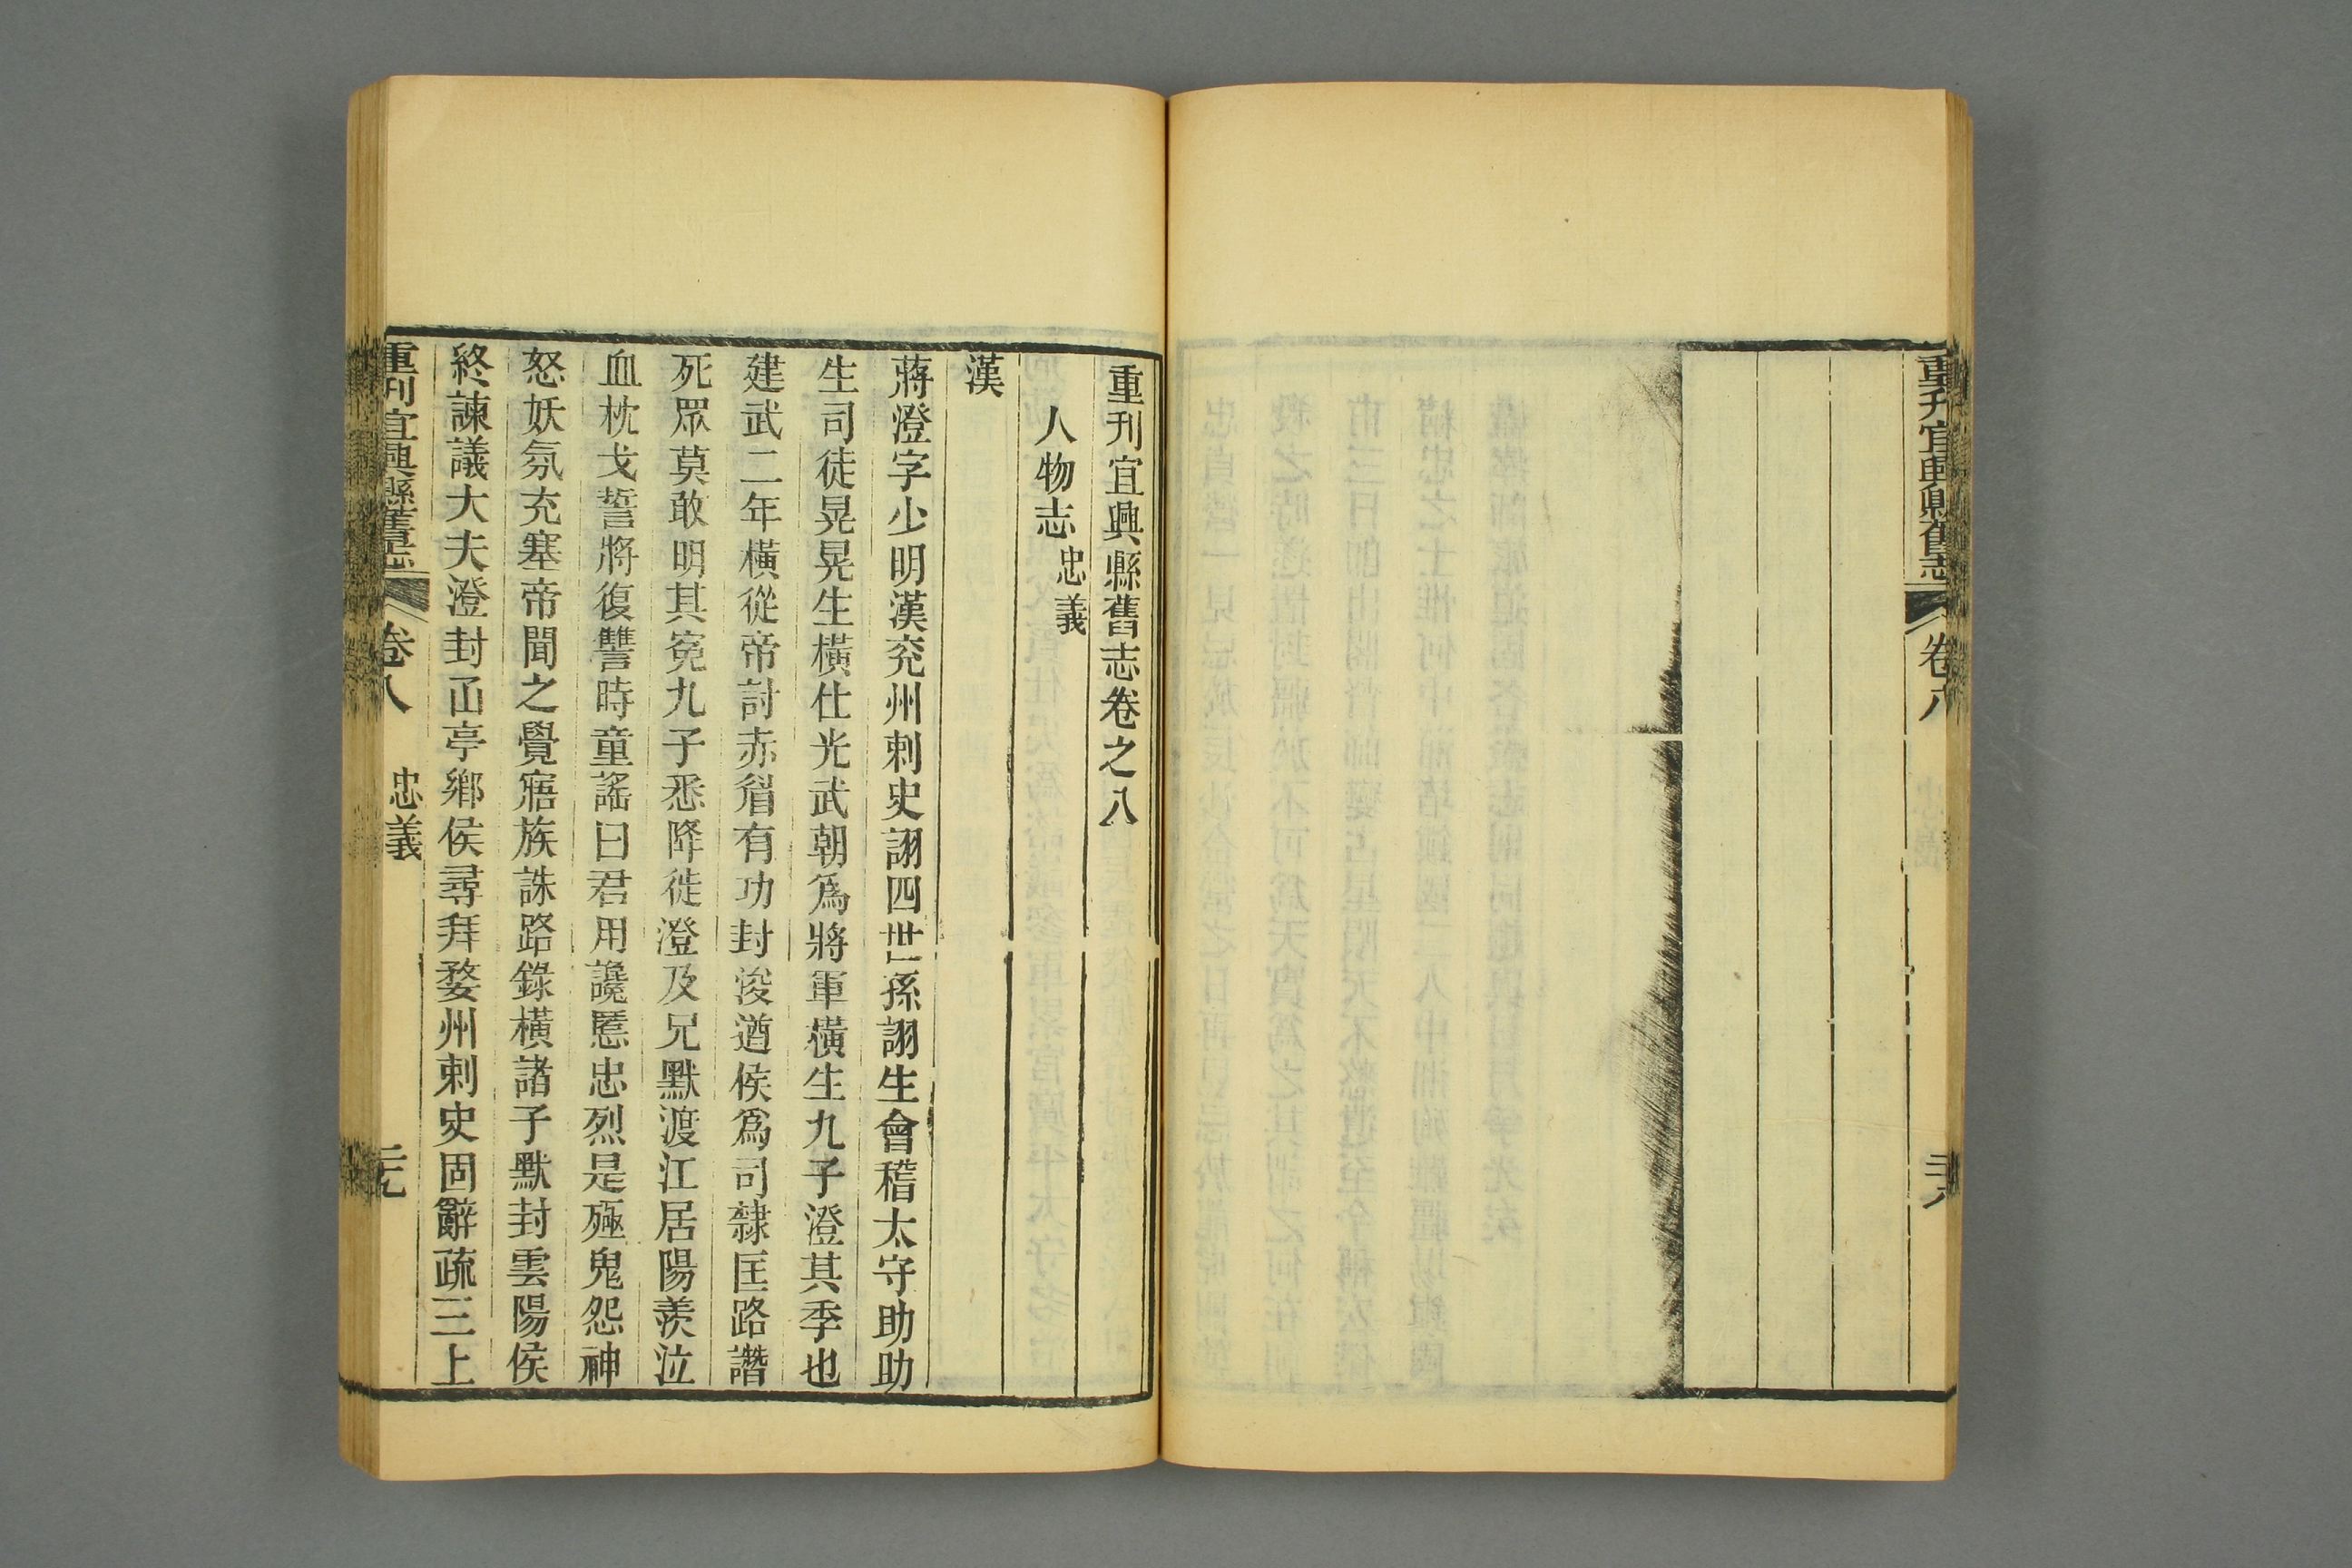 重刊宜興縣舊志
卷八
重刊宜興縣舊志卷之八
人物志 忠義
漢
蔣澄字少明漢兖州刺史詡四世孫詡生會稽太守助助
生司徒晃晃生橫仕光武朝爲將軍橫生九子澄其季也
建武二年橫從帝討赤眉有功封浚遒侯爲司隸匡路譖
死眾莫敢明其寃九子悉降徙澄及兄默渡江居陽羨泣
血枕戈誓將復讐時童謠曰君用讒慝忠烈是殛鬼怨神
怒妖氛充塞帝聞之覺寤族誅路錄橫諸子默封雲陽侯
終諫議大夫澄封㔾亭鄉侯尋拜婺州刺史固辭疏三上
重刊宜興縣舊志
卷八
忠義